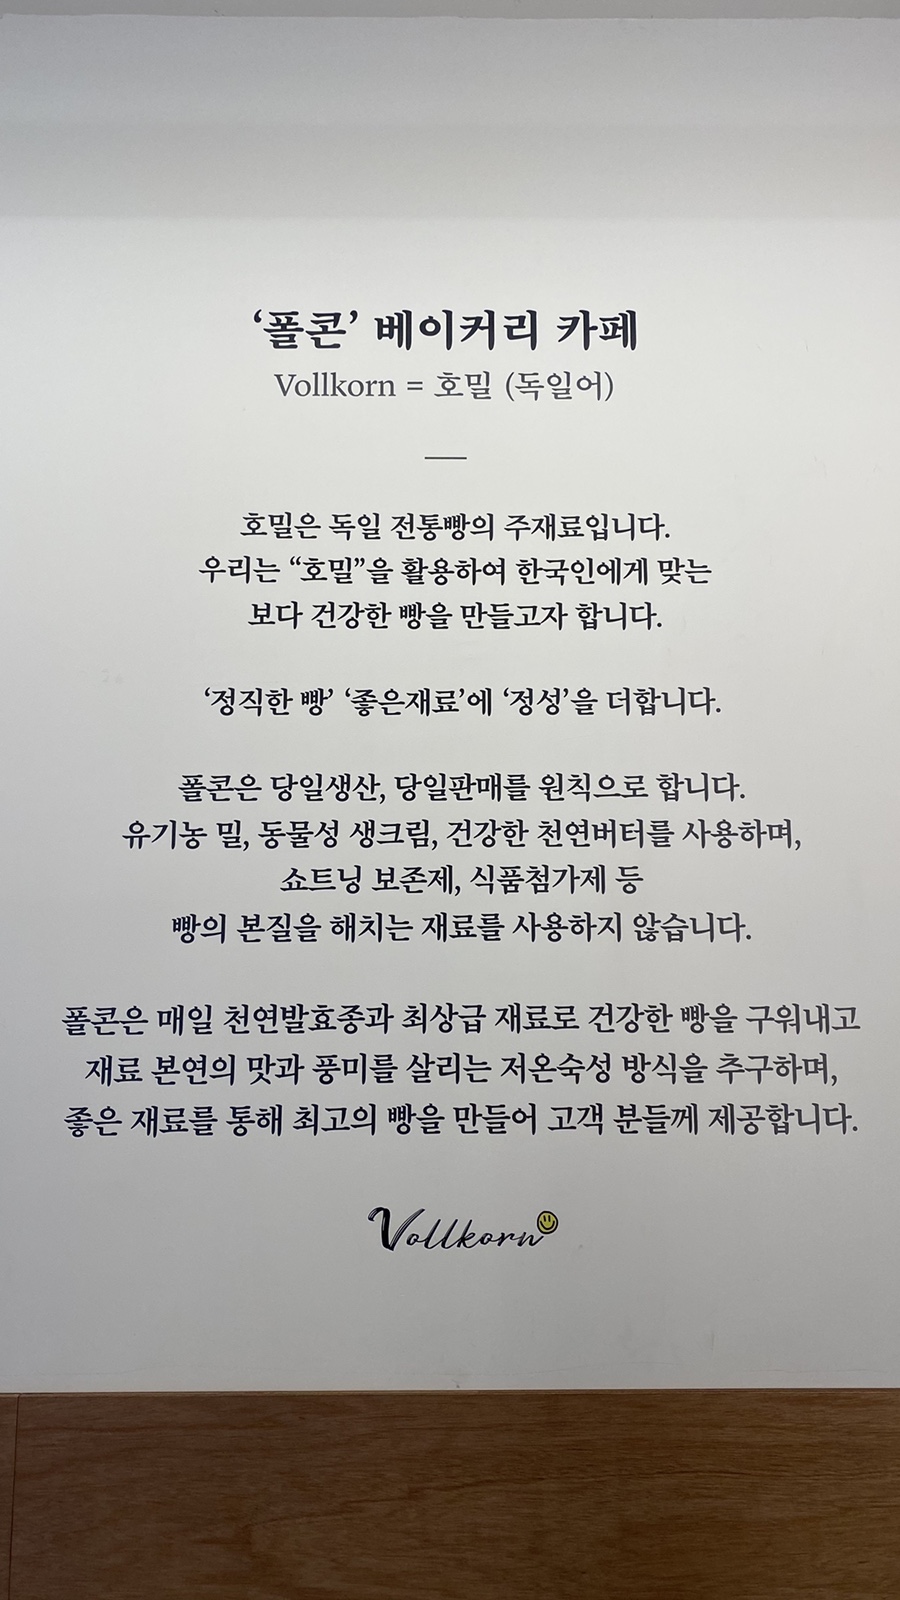 ‘폴콘’ 베이커리 카페
Vollkorn = 호밀 (독일어)
호밀은 독일 전통빵의 주재료입니다.
우리는 “호밀”을 활용하여 한국인에게 맞는
보다 건강한 빵을 만들고자 합니다.
‘정직한 빵’ ‘좋은재료’에 ‘정성’을 더합니다.
폴콘은 당일생산, 당일판매를 원칙으로 합니다.
유기농 밀, 동물성 생크림, 건강한 천연버터를 사용하며,
쇼트닝 보존제, 식품첨가제 등
빵의 본질을 해치는 재료를 사용하지 않습니다.
폴콘은 매일 천연발효종과 최상급 재료로 건강한 빵을 구워내고
재료 본연의 맛과 풍미를 살리는 저온숙성 방식을 추구하며,
좋은 재료를 통해 최고의 빵을 만들어 고객 분들께 제공합니다.
Vollkorn